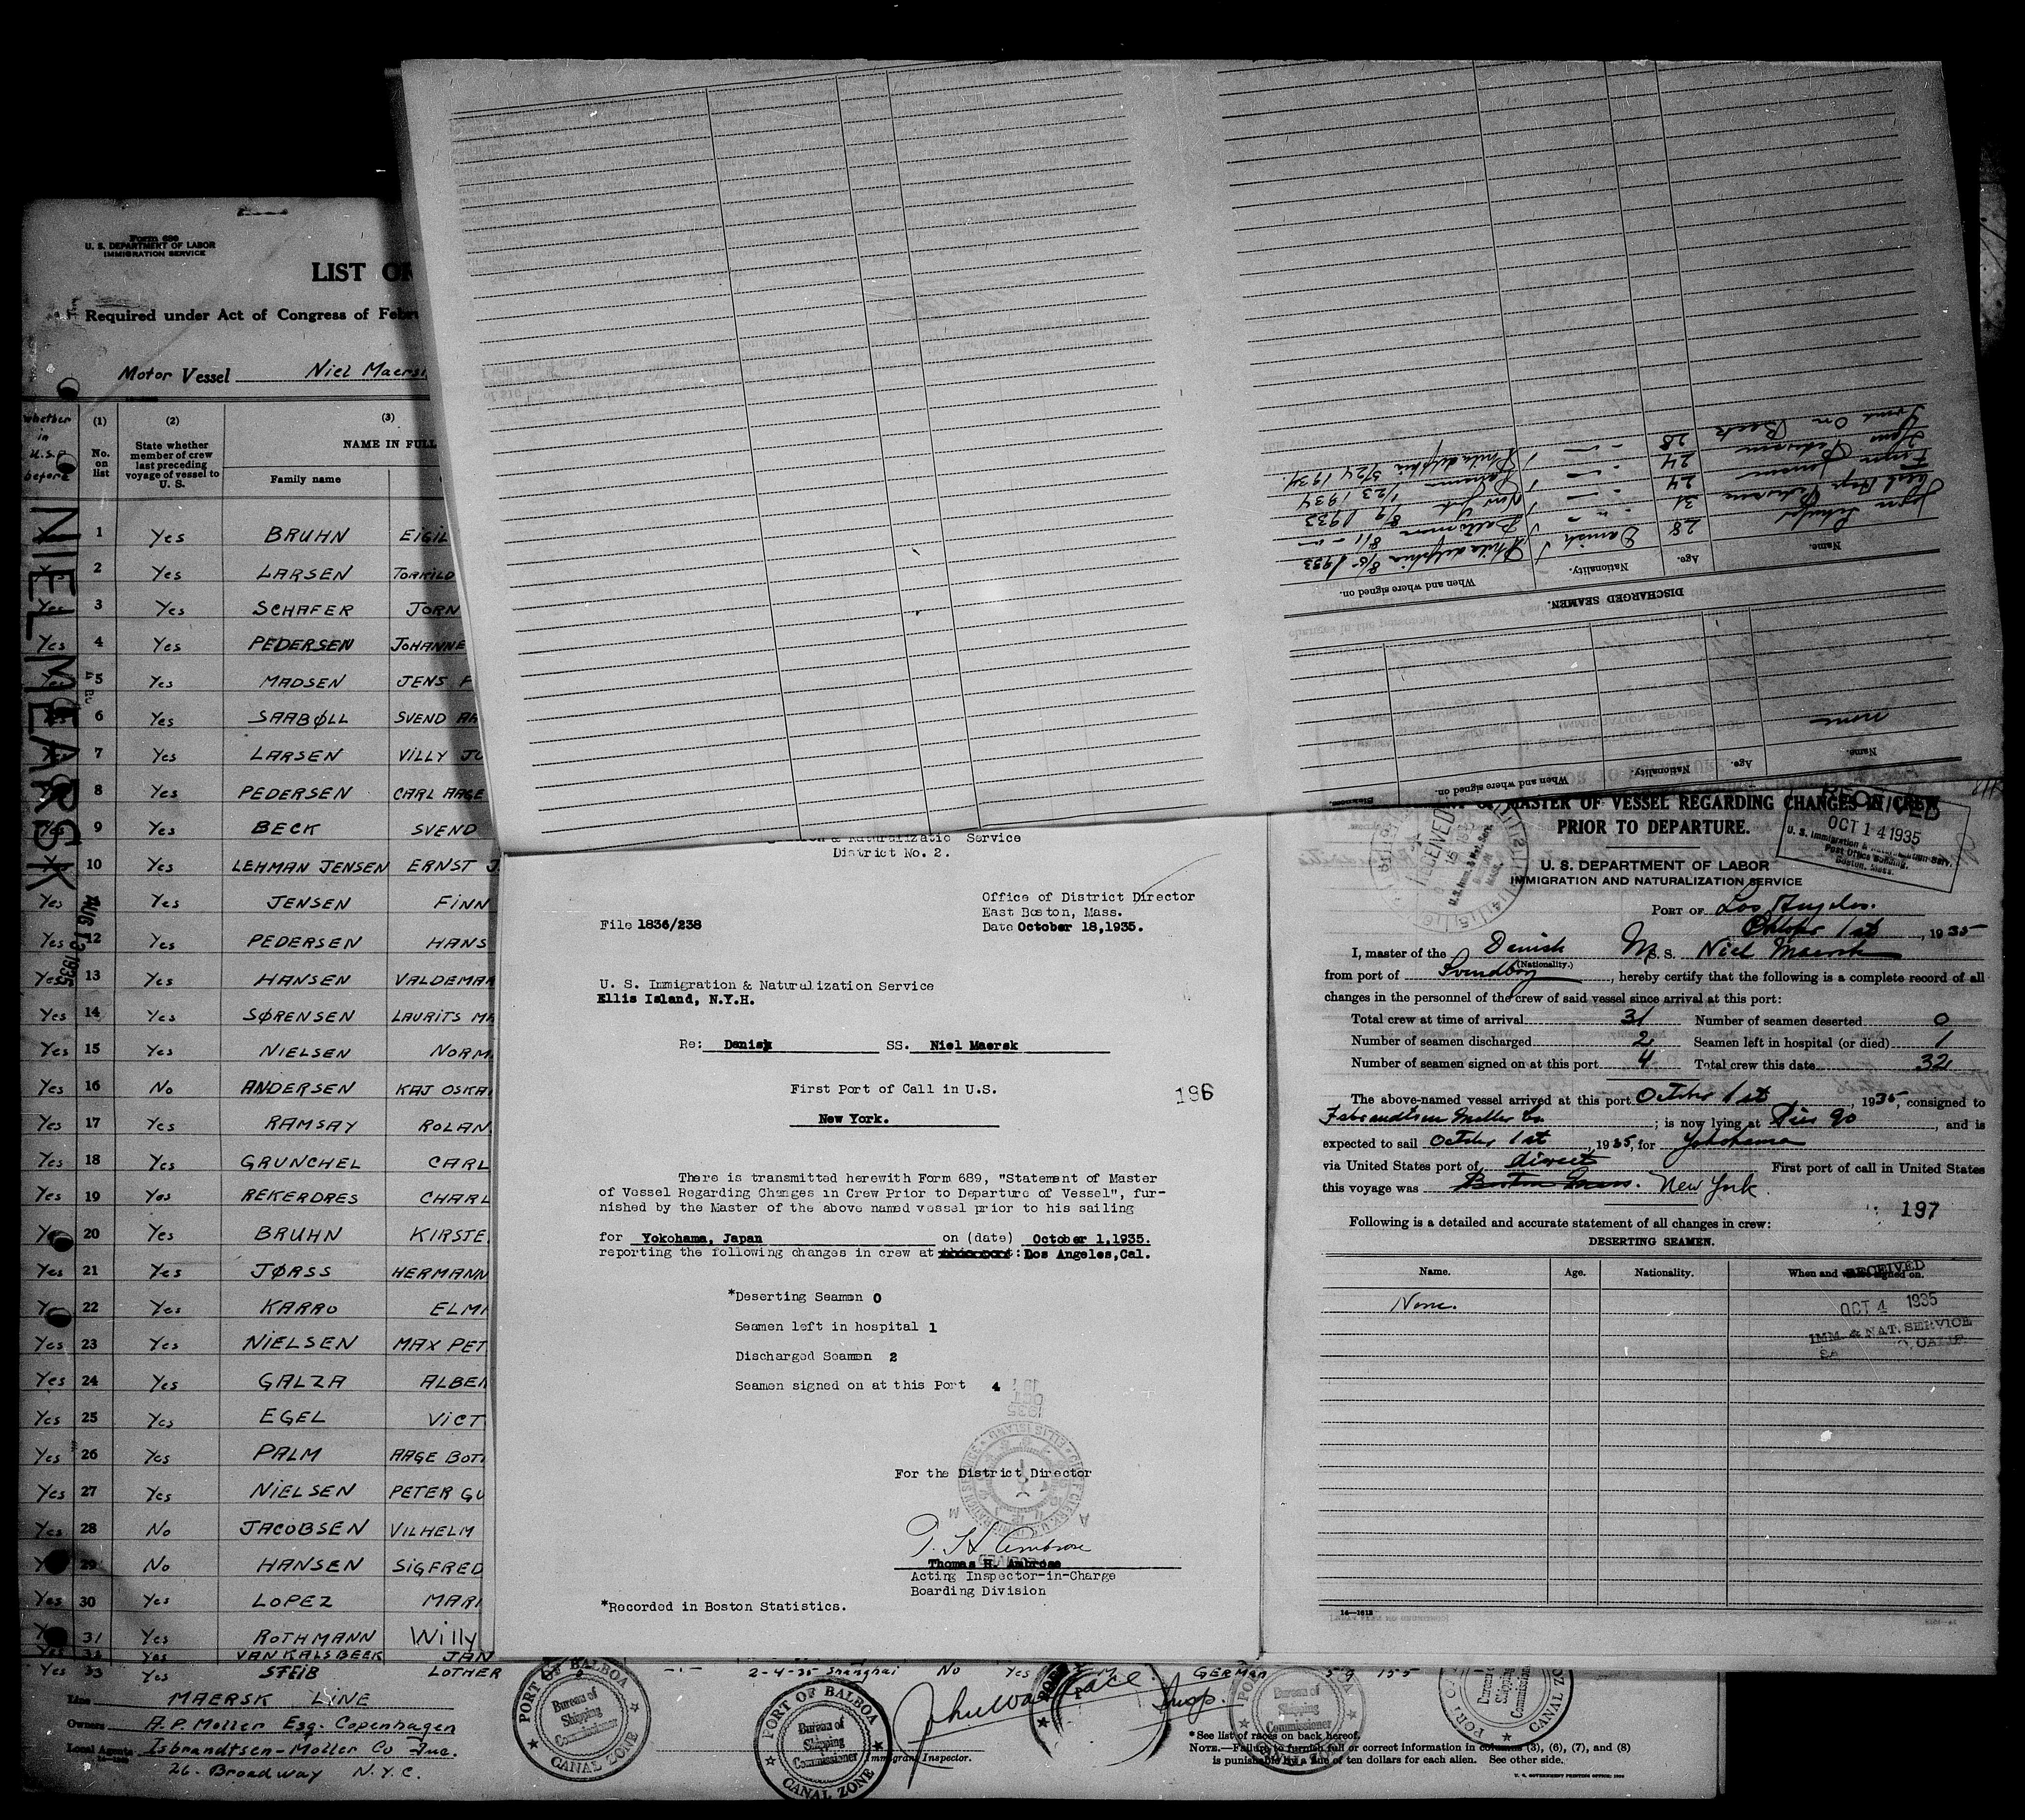 Form 689
U. S. DEPARTMENT OF LABOR
IMMIGRATION SERVICE
LIST OF
Required under Act of Congress of Febru
Motor Vessel Niel Maersk
whether in U.S.A before
(1) No. on list
(2) State whether member of crew last preceding voyage of vessel to U. S.
(3) NAME IN FULL
Family name
NIEL MÆARSK
AUG 13 1935
1 Yes BRUHN EIGIL
Yes 2 Yes LARSEN TORKILD
Yes 3 Yes SCHAFER JORN
Yes 4 Yes PEDERSEN JOHANNE
Yes 5 Yes MADSEN JENS F
6 Yes SAABØLL SVEND AA
7 Yes LARSEN VILLY JO
8 Yes PEDERSEN CARL AAGE
9 Yes BECK SVEND
10 Yes LEHMAN JENSEN ERNST J
Yes Yes JENSEN FINN
Yes 12 Yes PEDERSEN HANS
Yes 13 Yes HANSEN VALDEMAR
Yes 14 Yes SØRENSEN LAURITS MA
Yes 15 Yes NIELSEN NORM
Yes 16 No ANDERSEN KAJ OSKA
Yes 17 Yes RAMSAY ROLAN
Yes 18 Yes GRUNCHEL CARL
Yes 19 Yes REKERDRES CHARL
Yes 20 Yes BRUHN KIRSTE
Yes 21 Yes JØRSS HERMANN
22 Yes KARRO ELM
Yes 23 Yes NIELSEN MAX PET
Yes 24 Yes GALZA ALBE
Yes 25 Yes EGEL VICT
Yes 26 Yes PALM AAGE BOT
Yes 27 Yes NIELSEN PETER GU
Yes 28 No JACOBSEN VILHELM
29 No HANSEN SIGFRED
Yes 30 Yes LOPEZ MARI
31 Yes ROTHMANN Willy
Yes 32 Yes VAN KALSBEEK JAN
Yes 33 Yes STEIB LOTHER 2-4-35 Shanghai No Yes M. GERMAN 5 9 155
Line MAERSK LINE
Owners A.P. Moller Esq. Copenhagen
Local Agents Isbrandtsen-Moller Co Inc.
26 - Broadway N.Y.C.
PORT OF BALBOA
Bureau of Shipping Commissioner
CANAL ZONE
PORT OF BALBOA
Bureau of Shipping Commissioner
CANAL ZONE
PORT
Bureau of Shipping Commissioner
CANAL ZONE
Bureau of Shipping Commissioner
CANAL ZONE
John Wallace Insp.
Immigrant Inspector.
*See list of races on back hereof.
NOTE.—Failure to furnish full or correct information in columns (3), (6), (7), and (8)
is punishable by a fine of ten dollars for each alien. See other side.
U. S. GOVERNMENT PRINTING OFFICE
Name. Age. Nationality. When and where signed on.
none
DISCHARGED SEAMEN.
Name. Age. Nationality. When and where signed on.
Jorgen Schafer 28 Danish Philadelphia 8/5 1933
Carl Aage Pedersen 31 Baltimore 8/11
Finn Jensen 24 New York 8/9 1933
Hans Pedersen 24 1/23 1934
Svend On Beck 28 Philadelphia 3/24 1934.
& Naturalizatio Service
District No. 2.
Office of District Director
East Boston, Mass.
Date October 18,1935.
File 1836/238
U. S. Immigration & Naturalization Service
Ellis Island, N.Y.H.
Re: Danish SS. Niel Maersk
First Port of Call in U.S.
196
New York.
There is transmitted herewith Form 689, "Statement of Master
of Vessel Regarding Changes in Crew Prior to Departure of Vessel", fur-
nished by the Master of the above named vessel prior to his sailing
for Yokohama, Japan on (date) October 1,1935.
reporting the following changes in crew at this port: Dos Angeles,Cal.
*Deserting Seamen 0
Seamen left in hospital 1
Discharged Seamen 2
Seamen signed on at this Port 4
For the District Director
T. H. Ambrose
Thomas H. Ambrose
Acting Inspector-in-Charge
Boarding Division
*Recorded in Boston Statistics.
MASTER OF VESSEL REGARDING CHANGES IN CREW
PRIOR TO DEPARTURE.
RECEIVED
OCT 14 1935
U. S. Immigration & Naturalization Serv.
Post Office Building,
Boston, Mass.
RECEIVED
U. S. DEPARTMENT OF LABOR
IMMIGRATION AND NATURALIZATION SERVICE
PORT OF Los Angeles.
October 1st, 1935
I, master of the Danish M. S. S. Niel Maersk
(Nationality.)
from port of Svendborg, hereby certify that the following is a complete record of all
changes in the personnel of the crew of said vessel since arrival at this port:
Total crew at time of arrival 31 Number of seamen deserted 0
Number of seamen discharged 2 Seamen left in hospital (or died) 1
Number of seamen signed on at this port 4 Total crew this date 32
The above-named vessel arrived at this port October 1st, 1935, consigned to
Isbrandtsen Moller Co ; is now lying at Pier 90, and is
expected to sail October 1st, 1935, for Yokohama
via United States port of direct First port of call in United States
this voyage was Boston Mass. New York.
197
Following is a detailed and accurate statement of all changes in crew:
DESERTING SEAMEN.
Name. Age. Nationality. When and where signed on.
None.
RECEIVED
OCT 4 1935
IMM. & NAT. SERVICE
14—1612